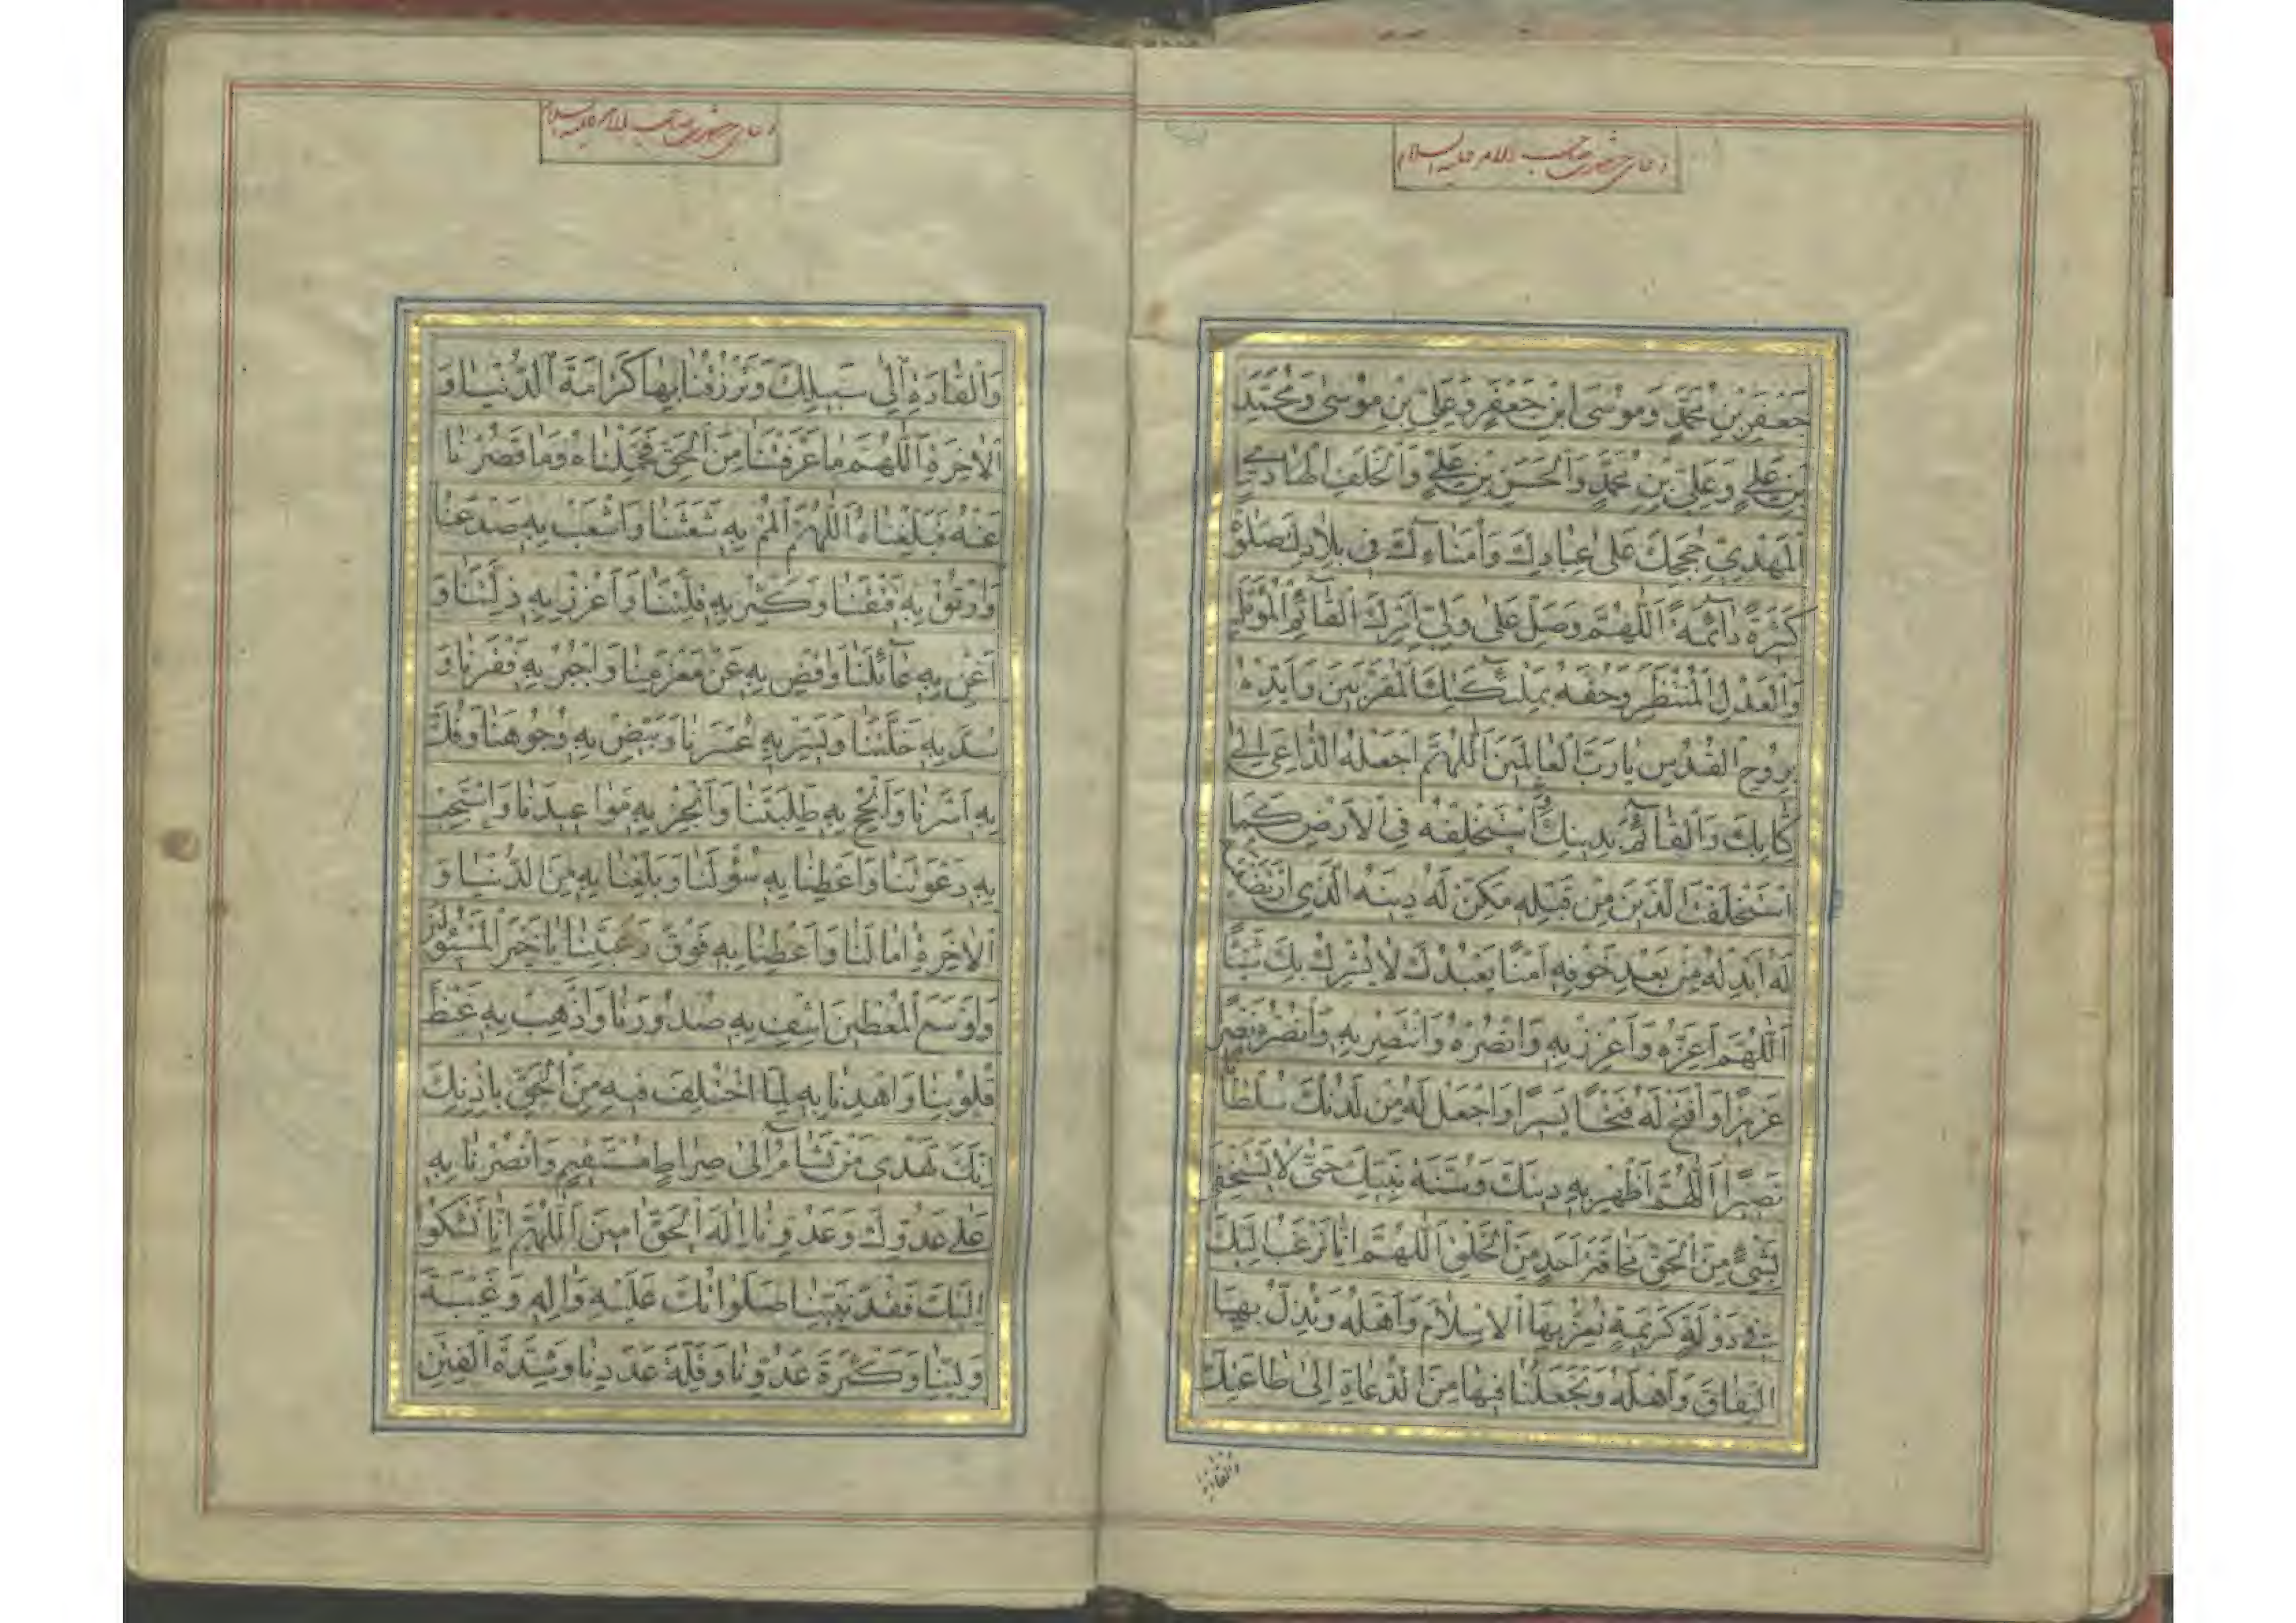 دعای حضرت صاحب الامر علیه السلام
جَعْفَرِ بْنِ مُحَمَّدٍ وَمُوسَى ابْنِ جَعْفَرٍ وَعَلِيِّ بْنِ مُوسٰى وَمُحَمَّدِ
بْنِ عَلِيٍّ وَعَلِيِّ بْنِ مُحَمَّدٍ وَالْحَسَنِ بْنِ عَلِيٍّ وَالْخَلَفِ الْهٰادِي
الْمَهْدِيِّ حُجَجِكَ عَلىٰ عِبٰادِكَ وَأُمَنٰاءِكَ فِي بِلٰادِكَ صَلٰوةً
كَثِيرَةً دٰائِمَةً اَللّٰهُمَّ وَصَلِّ عَلىٰ وَلِيِّ اَمْرِكَ الْقٰائِمِ الْمُؤَمَّلِ
وَالْعَدْلِ الْمُنْتَظَرِ وَحُفَّهُ بِمَلٰئِكَتِكَ الْمُقَرَّبِينَ وَاَيِّدْهُ
بِرُوحِ الْقُدُسِ يٰا رَبَّ الْعٰالَمِينَ اَللّٰهُمَّ اجْعَلْهُ الدّٰاعِيَ اِلىٰ
كِتٰابِكَ وَالْقٰائِمَ بِدِينِكَ اسْتَخْلِفْهُ فِي الْاَرْضِ كَمَا
اسْتَخْلَفْتَ الَّذِينَ مِنْ قَبْلِهِ مَكِّنْ لَهُ دِينَهُ الَّذِي ارْتَضَيْتَهُ
لَهُ اَبْدِلْهُ مِنْ بَعْدِ خَوْفِهِ اَمْنًا يَعْبُدُكَ لٰا يُشْرِكُ بِكَ شَيْئًا
اَللّٰهُمَّ اَعِزَّهُ وَاَعْزِزْ بِهِ وَانْصُرْهُ وَانْتَصِرْ بِهِ وَانْصُرْهُ نَصْرًا
عَزِيزًا وَافْتَحْ لَهُ فَتْحًا يَسِيرًا وَاجْعَلْ لَهُ مِنْ لَدُنْكَ سُلْطٰانًا
نَصِيرًا اَللّٰهُمَّ اَظْهِرْ بِهِ دِينَكَ وَسُنَّةَ نَبِيِّكَ حَتّٰى لٰا يَسْتَخْفِيَ
بِشَيْءٍ مِنَ الْحَقِّ مَخٰافَةَ اَحَدٍ مِنَ الْخَلْقِ اَللّٰهُمَّ اِنّٰا نَرْغَبُ اِلَيْكَ
فِي دَوْلَةٍ كَرِيمَةٍ تُعِزُّ بِهَا الْاِسْلٰامَ وَاَهْلَهُ وَتُذِلُّ بِهَا
النِّفٰاقَ وَاَهْلَهُ وَتَجْعَلُنٰا فِيهٰا مِنَ الدُّعٰاةِ اِلىٰ طٰاعَتِكَ
وَالْقٰادَةِ
دعای حضرت صاحب الامر علیه السلام
وَالْقٰادَةِ اِلىٰ سَبِيلِكَ وَتَرْزُقُنٰا بِهٰا كَرٰامَةَ الدُّنْيٰا وَ
الْاٰخِرَةِ اَللّٰهُمَّ مٰا عَرَّفْتَنٰا مِنَ الْحَقِّ فَحَمِّلْنٰاهُ وَمٰا قَصُرْنٰا
عَنْهُ فَبَلِّغْنٰاهُ اَللّٰهُمَّ الْمُمْ بِهِ شَعَثَنٰا وَاشْعَبْ بِهِ صَدْعَنٰا
وَارْتُقْ بِهِ فَتْقَنٰا وَكَثِّرْ بِهِ قِلَّتَنٰا وَاَعْزِزْ بِهِ ذِلَّتَنٰا وَ
اَغْنِ بِهِ عٰائِلَنٰا وَاقْضِ بِهِ عَنْ مَغْرَمِنٰا وَاجْبُرْ بِهِ فَقْرَنٰا وَ
سُدَّ بِهِ خَلَّتَنٰا وَيَسِّرْ بِهِ عُسْرَنٰا وَبَيِّضْ بِهِ وُجُوهَنٰا وَفُكَّ
بِهِ اَسْرَنٰا وَاَنْجِحْ بِهِ طَلِبَتَنٰا وَاَنْجِزْ بِهِ مَوٰاعِيدَنٰا وَاسْتَجِبْ
بِهِ دَعْوَتَنٰا وَاَعْطِنٰا بِهِ سُؤْلَنٰا وَبَلِّغْنٰا بِهِ مِنَ الدُّنْيٰا وَ
الْاٰخِرَةِ اٰمٰالَنٰا وَاَعْطِنٰا بِهِ فَوْقَ رَغْبَتِنٰا يٰا خَيْرَ الْمَسْئُولِينَ
وَاَوْسَعَ الْمُعْطِينَ اشْفِ بِهِ صُدُورَنٰا وَاَذْهِبْ بِهِ غَيْظَ
قُلُوبِنٰا وَاهْدِنٰا بِهِ لِمَا اخْتُلِفَ فِيهِ مِنَ الْحَقِّ بِاِذْنِكَ
اِنَّكَ تَهْدِي مَنْ تَشٰاءُ اِلىٰ صِرٰاطٍ مُسْتَقِيمٍ وَانْصُرْنٰا بِهِ
عَلىٰ عَدُوِّكَ وَعَدُوِّنٰا اِلٰهَ الْحَقِّ اٰمِينَ اَللّٰهُمَّ اِنّٰا نَشْكُوا
اِلَيْكَ فَقْدَ نَبِيِّنٰا صَلَوٰاتُكَ عَلَيْهِ وَاٰلِهِ وَغَيْبَةَ
وَلِيِّنٰا وَكَثْرَةَ عَدُوِّنٰا وَقِلَّةَ عَدَدِنٰا وَشِدَّةَ الْفِتَنِ